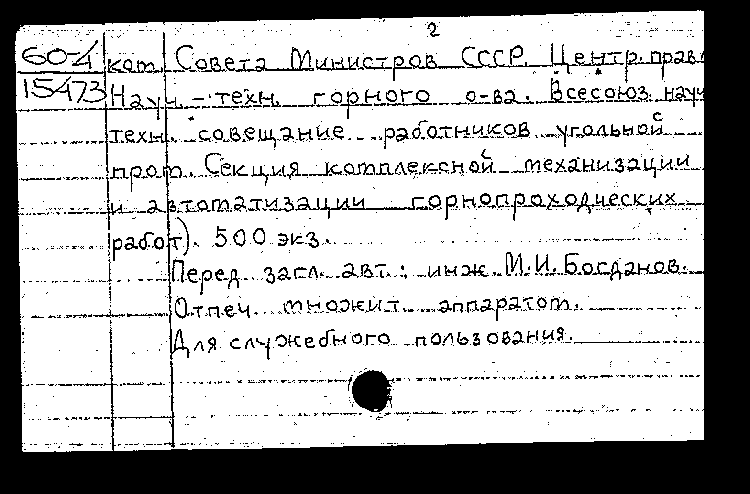 2
60-4 ком. Совета Министров СССР. Центр. правл
15473 Науч.-техн. горного о-ва. Всесоюз. науч
техн. совещание работников угольной
пром. Секция комплексной механизации
и автоматизации горнопроходческих
работ). 500 экз.
Перед загл. авт.: инж. М.И. Богданов.
Отпеч. множит. аппаратом.
Для служебного пользования.